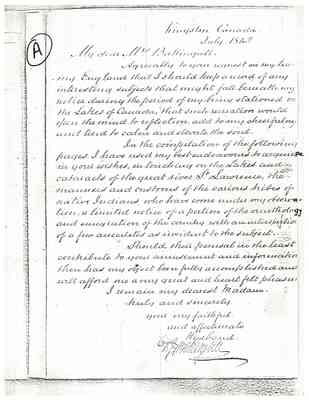 A
Kingston Canada
July 184
My dear Mrs
Agreeably to your request on my leaving
my England that I should keep a record of any
interesting subjects that might fall beneath my
notice during the period of my being stationed on
the Lakes of Canada, that such occupation would
open the mind to reflection, add to my cheerfulness
and tend to calm and elevate the soul.
In the compilation of the following
pages I have used my best endeavours to acquiesce
in your wishes, in touching on the Lakes and
cataracts of the great river St Lawrence, the
manners and customs of the various tribes of
native Indians who have come under my observa-
tion, a limited notice of a portion of the ornithology
and emigration of the country with an
of a few anecdotes as incident to the subject.
Should their perusal in the least
contribute to your amusement and information
then has my object been fully accomplished and
will afford me a very great and heart felt pleasure
I remain my dearest Madam
truly and sincerely
your my faithful
and affectionate
Husband